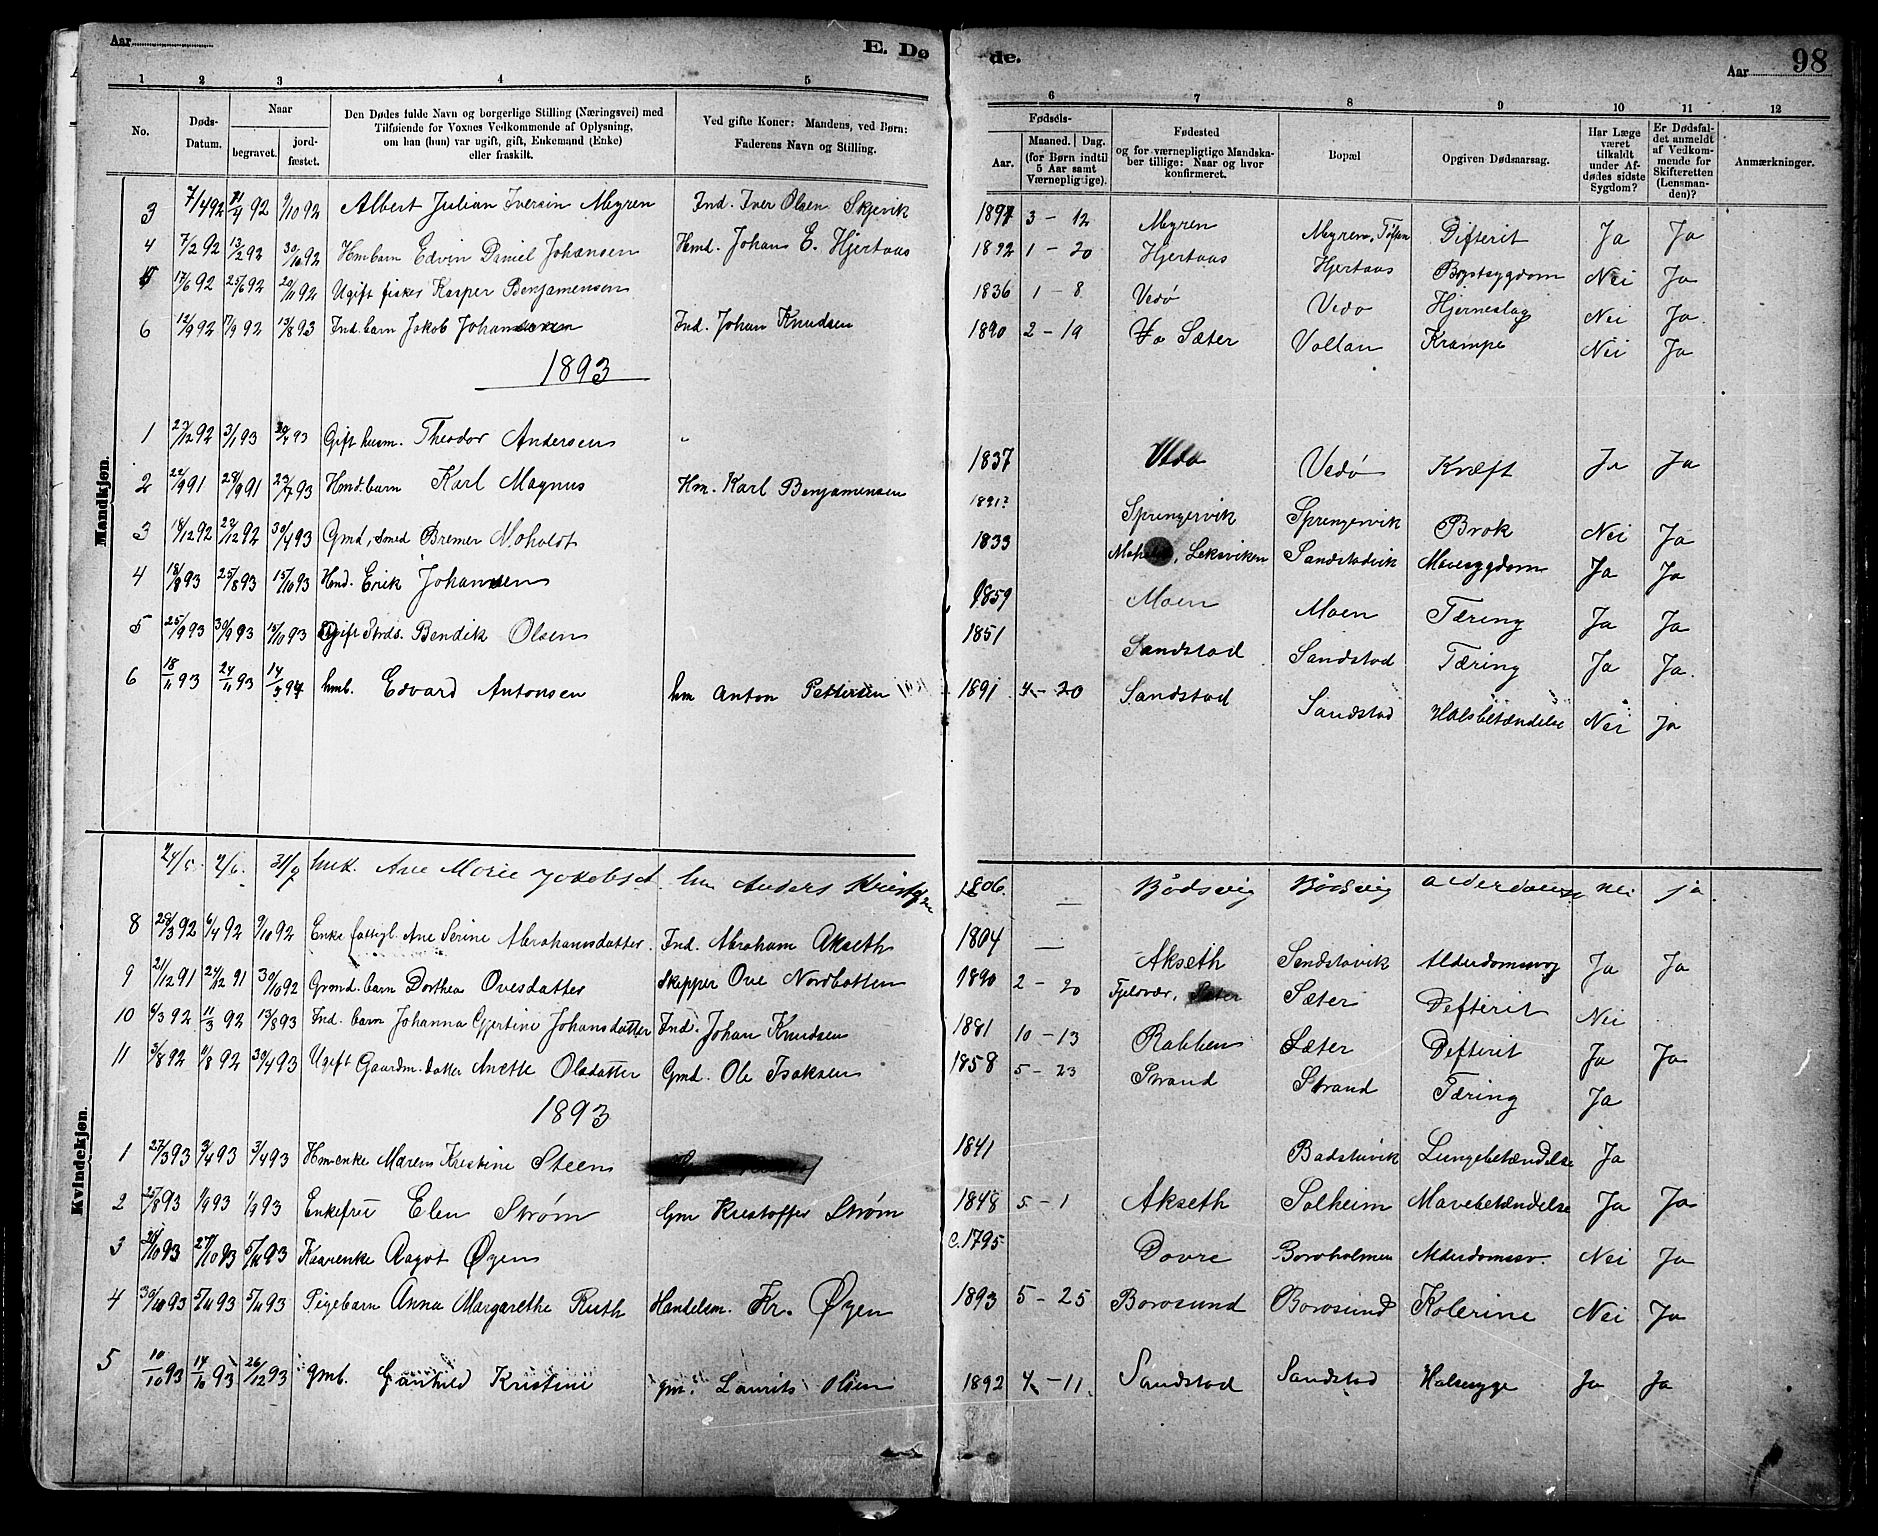 Aar E. Dø de. Aar 98
1 2 3 4 5 6 7 8 9 10 11 12
No.
Døds-Datum.
Naar
begravet.
jord-fæstet.
Den Dødes fulde Navn og borgerlige Stilling (Næringsvei) med
Tilføiende for Voxnes Vedkommende af Oplysning,
om han (hun) var ugift, gift, Enkemand (Enke)
eller fraskilt.
Ved gifte Koner: Mandens, ved Børn:
Faderens Navn og Stilling.
Fødsels-
Aar. Maaned. Dag.
(for Børn indtil
5 Aar samt
Værnepligtige).
Fødested
og for værnepligtige Mandska-
ber tillige: Naar og hvor
konfirmeret.
Bopæl
Opgiven Dødsaarsag.
Har Læge
været
tilkaldt
under Af-
dødes sidste
Sygdom?
Er Dødsfal-
det anmeldt
af Vedkom-
mende for
Skifteretten
(Lensman-
den)?
Anmærkninger.
Mandkjøn.
3 7/4 92 9/10 92 Albert Julian Iversen Myren Ind. Iver Olsen Skjevik 3 - 12 Myren Myren, Difterit Ja Ja
4 7/2 92 13/2 92 30/10 92 Hmbarn Edvin Daniel Johansen Hmd. Johans E. Hjertaas 1892 1 - 20 Hjertaas Hjertaas Brystsygdom Nei Ja
5 17/6 92 25/6 92 20/11 92 Ugift fisker Kasper Benjamensen 1836 1 - 8 Vedø Vedø Hjerneslag Nei Ja.
6 12/9 92 17/9 92 13/8 93 Ind. barn Jakob Johansen Ind. Johan Knudsen 1890 2 - 19 Sæter Valtan Krampe Nei Ja
1893
1 27/12 92 3/1 93 93 Gift husm. Theodor Andersen " 1837 Vedø Vedø Kræft Ja Ja
2 22/9 91 28/9 91 23/7 93 Hmd. barn Karl Magnus Hm. Karl Benjamensen 1891? Sprengervik Sprengervik Brok Nei Ja
3 18/12 92 27/12 92 30/4 93 Gmd, smed Bremer Moholdt 1833 Leksviken Sandstadvik Mavesygdom Ja Ja
4 18/8 93 25/8 93 15/10 93 Hmd. Erik Johansen 1859 Moen Moen Tæring Ja Ja
5 25/9 93 30/9 93 15/10 93 Ugift Bendik Olsen 1851 Sandstad Sandstad Tæring Ja Ja.
6 18/11 93 24/11 93 14/5 94 hmb. Edvard Antonsen hm Anton Pettersen 1891 4 - 20 Sandstad Sandstad Halsbetændelse Nei Ja
Kvindekjøn.
31/7 hmk. Ane Marie Jokobsd. hm Anders 1806. — Bådsvig Bådsvig nei ja.
8 28/3 92 6/4 92 9/10 92 Enke fattigl. Ane Serine Abrahamsdatter. Ind. Abraham Akseth 1804 — Akseth Sandstavik Alderdomssvag Ja Ja
9 21/12 91 24/12 91 30/10 92 Grmd. barn Dorthea Ovesdatter Skipper Ove Nordbotten 1890 2 - 20 Fjeldvær, Sæter Sæter Defterit Nei
10 6/3 92 11/3 92 13/8 93 Ind. barn Johanna Gjertine Johansdatter Ind. Johan Knudsen 1881 10 - 13 Rabben Sæter Defterit Ja Ja
11 3/8 92 11/8 92 30/4 93 Ugift Gaardm. datter Anette Olsdatter Gmd. Ole Isaksen 1858 5 - 23 Strand Strand Tæring Ja
1893
1 27/3 93 3/4 93 3/4 93 Hm-enke Maren Kristine Steen 1841 Badstuvik Lungebetændelse Ja
2 25/8 93 1/9 93 1/9 93 Enkefru Elen Strøm Gm Kristoffer Strøm 1848 5 - 1 Akseth Solheim Mavebetændelse Ja Ja
3 20/10 93 27/10 93 5/11 93 Kaarenke Aagot Øyen c. 1795 Dovre Borøholmen Alderdomssv. Nei Ja
4 30/10 93 5/11 93 5/11 93 Pigebarn Anna Margarethe Ruth Handelsm. Kr. Øyen 1893 5 - 25 Borøsund Borøsund Kolerine Nei Ja
5 10/10 93 14/10 93 26/12 93 gmb. Gunhild Kristine gm. Laurits Olsen 1892 4 - 11. Sandstad Sandstad Halssyge Ja Ja